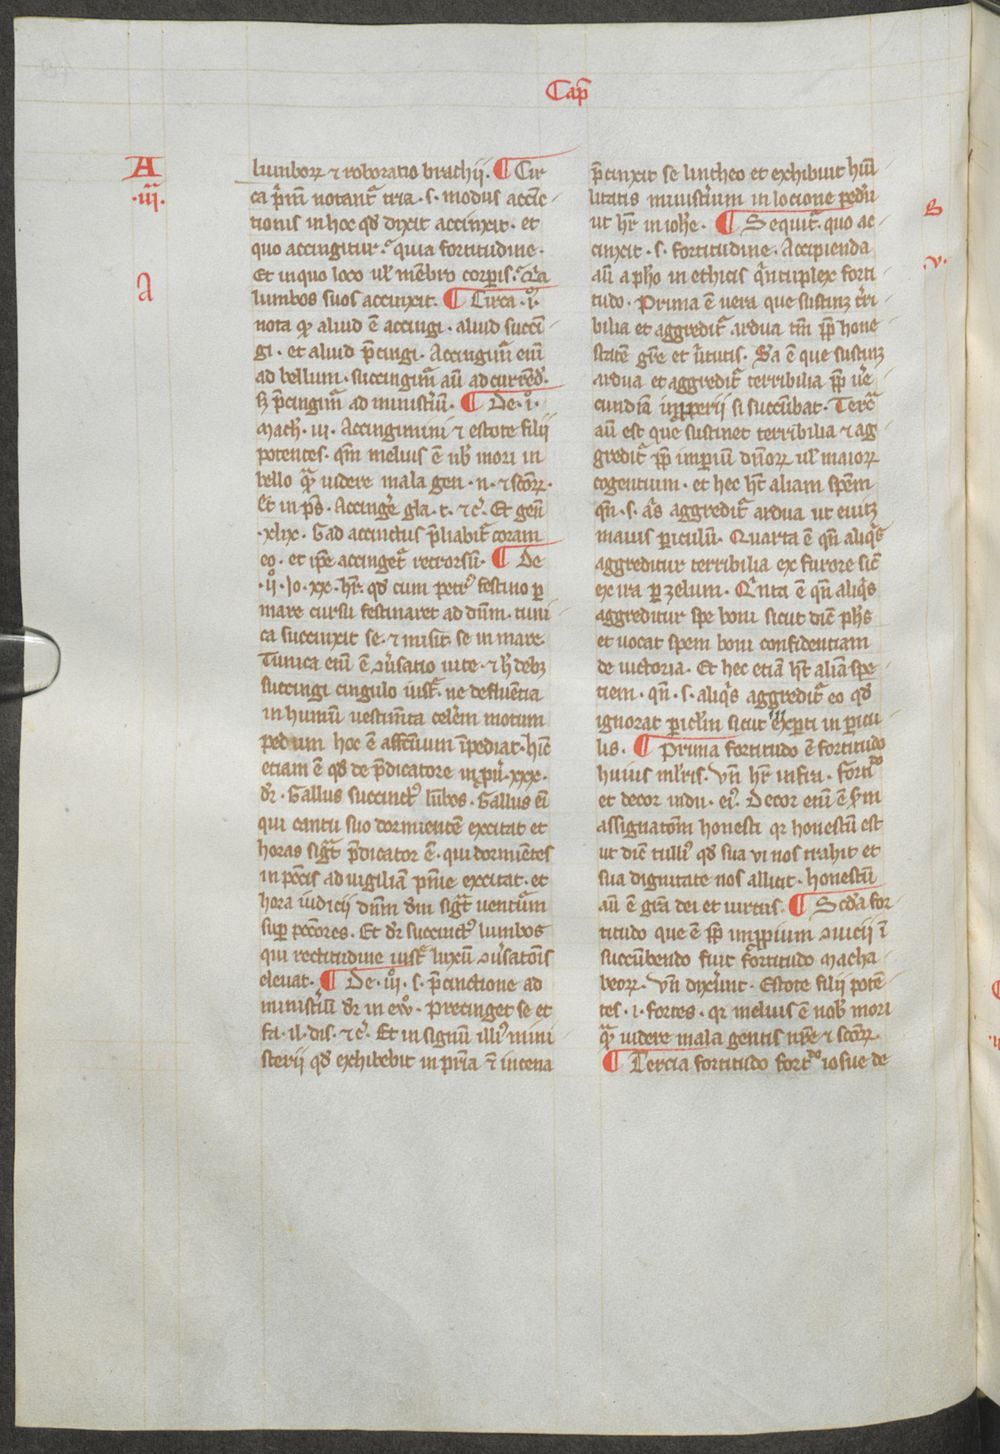 Cap̄
A
.iii.
a
lumboꝝ ⁊ roboratio brachii. ¶ Cir
ca p̄mū notant᷑ tria. s. modus accīc
tionis in hoc qd̄ dixit accinxit. et
quo accingitur. quia fortitudine.
Et in quo loco ul̓ mēbro corpis.
lumbos suos accinxit. ¶ Circa .i.
nota ꝙ aliud ē accingi. aliud succī
gi. et aliud p̄cingi. Accingim᷑ eni
ad bellum. succingim᷑ aū ad currēd̄.
Ꝫ p̄cingim᷑ ad ministiū. ¶ De .i.
mach̓. iii. Accingimini ⁊ estote filii
potentes. qm̄ melius ē nob̓ mori in
bello qᷓ uidere mala gen. n. ⁊ scōꝝ.
Et in ps̄. Accinge̓ gla. t. ⁊ c̓. Et gen̄
.xlix. Gad accinctus p̄liabit᷑ coram
eo. et ip̄e accinget᷑ retrorsū. ¶ De
.ii. Jo. xx. hr̄. qd̄ cum petr᷒ festino p
mare cursu festinaret ad dn̄m. tuni
ca succinxit se. ⁊ misit se in mare
Tunica eni ē ↄu̓satio uite. ⁊ h̓ debꝫ
succingi cingulo iust̓. ne defluētia
in humū uestimīta celēm motum
pedum hoc ē affcūum īpediat. hic̄
etiam ē qd̄ de p̄dicatore in pu̓. xxx.
dr̄. Gallus succinct᷒ lūbos. Gallus eī
qui cantu suo dormientē excitat et
horas sigᷓt p̄dicator ē. qui dormiētes
in pc̄cis ad uigiliā pn̄ie excitat. et
hora iudicii dn̄m dm̄ sigᷓt uentūm
sup̱ pc̄cores. Et dr̄ succinct᷒ lumbos
qui rectitudine iust̓ luxū ↄu̓satōis
eleuat. ¶ De .iii. s. p̄cinctione ad
ministiū dr̄ in ew̄. Precinget se et
fa. il. dis. ⁊ c̓. Et in signū illi᷒ mini
sterii qd̄ exhibebit in pr̄ia ⁊ī in cena
p̄cinxit se lintheo et exhibuit hūi
litatis ministi̓um in locione pedū
ut hr̄ in ioh̄e. ¶ Sequit᷑. quo ac
cinxit. s. fortitudine. Accipienda
aū a pho in ethicis q̓ntuplex forti
tudo. Prima ē uera que sustinꝫ tr̓ri
bilia et aggredit᷑ ardua tm̄ pp̄ hone
statē gr̄e et u̓tutis. Sa ē que sustinꝫ
ardua et aggredit᷑ terribilia pp̄ ue̓
cundiā īpperii si succūbat. Terc̓
aū est que sustinet terribilia ⁊ ag
gredit᷑ pp̄ impiū dn̄oꝝ ul̓ maioꝝ
cogentium. et hec ht̄ aliam spēm
qn̄. s. q̓s aggredit᷑ ardua ut euitꝫ
maius piculū. Quarta ē qn̄ aliq̓s
aggreditur terribilia ex furore sic̄
ex ira p zelum. Q̓nta ē qn̄ aliq̓s
aggreditur spe boni sicut dic̄ ph̄s
et uocat spem boni confidentiam
de uictoria. Et hec etiā ht̄ aliā spe
ciem. qn̄. s. aliq̓s aggredit᷑ eo qd̄
ignorat picl̓m sicut inexpti in picu
lis. ¶ Prima fortitudo ē fortitudo
huius ml̓ris. vn̄ hr̄ infra. forti°
et decor indu. ei᷒. Decor enī ē scdm
assignatōm honesti qr honestū est
ut dic̄ tulli᷒ qd̄ sua ui nos trahit et
sua dignitate nos allicit. honestū
aū ē gra dei et uirtus. ¶ Scd̓a for
titudo que ē pp̄ impprium ↄuicii ī
succūbendo fuit fortitudo macha
beoꝝ. vn̄ dixe̓unt. Estote filii potē
tes. i. fortes. qr melius ē nob̓ mori
qᷓ uidere mala gentis nr̄e ⁊ scōꝝ.
¶ Tercia fortitudo fort° iosue de
B
.v.